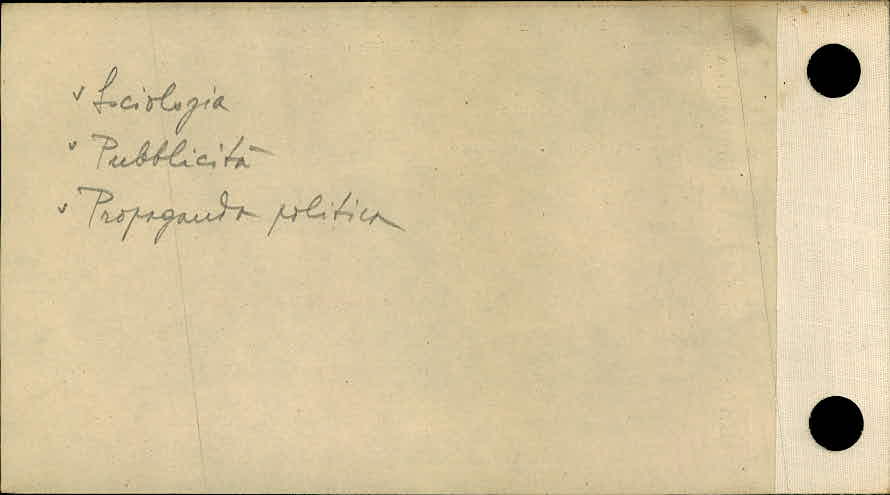 v Sociologia
v Pubblicità
v Propaganda politica